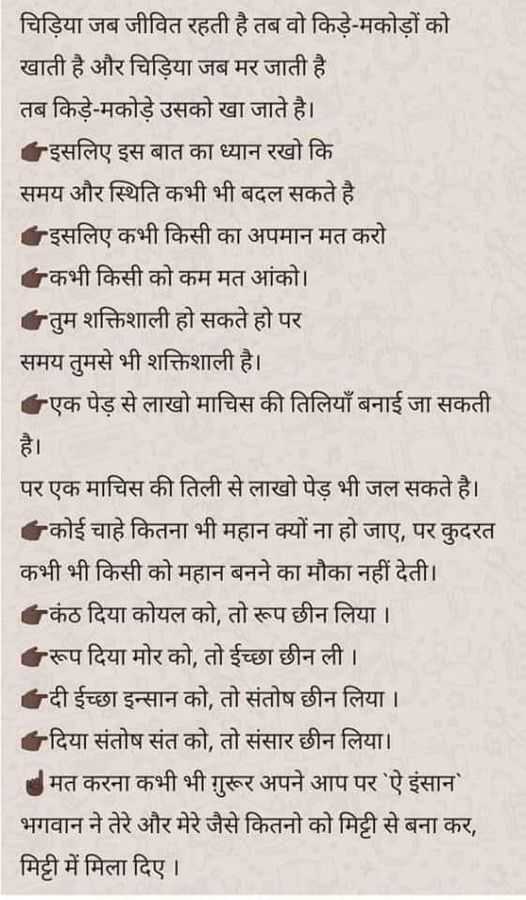 चिड़िया जब जीवित रहती है तब वो किड़े-मकोड़ों को
खाती है और चिड़िया जब मर जाती है
तब किड़े-मकोड़े उसको खा जाते है।
👉🏿इसलिए इस बात का ध्यान रखो कि
समय और स्थिति कभी भी बदल सकते है
👉🏿इसलिए कभी किसी का अपमान मत करो
👉🏿कभी किसी को कम मत आंको।
👉🏿तुम शक्तिशाली हो सकते हो पर
समय तुमसे भी शक्तिशाली है।
👉🏿एक पेड़ से लाखो माचिस की तिलियाँ बनाई जा सकती
है।
पर एक माचिस की तिली से लाखो पेड़ भी जल सकते है।
👉🏿कोई चाहे कितना भी महान क्यों ना हो जाए, पर कुदरत
कभी भी किसी को महान बनने का मौका नहीं देती।
👉🏿कंठ दिया कोयल को, तो रूप छीन लिया ।
👉🏿रूप दिया मोर को, तो ईच्छा छीन ली ।
👉🏿दी ईच्छा इन्सान को, तो संतोष छीन लिया ।
👉🏿दिया संतोष संत को, तो संसार छीन लिया।
☝🏿मत करना कभी भी ग़ुरूर अपने आप पर `ऐ इंसान`
भगवान ने तेरे और मेरे जैसे कितनो को मिट्टी से बना कर,
मिट्टी में मिला दिए ।